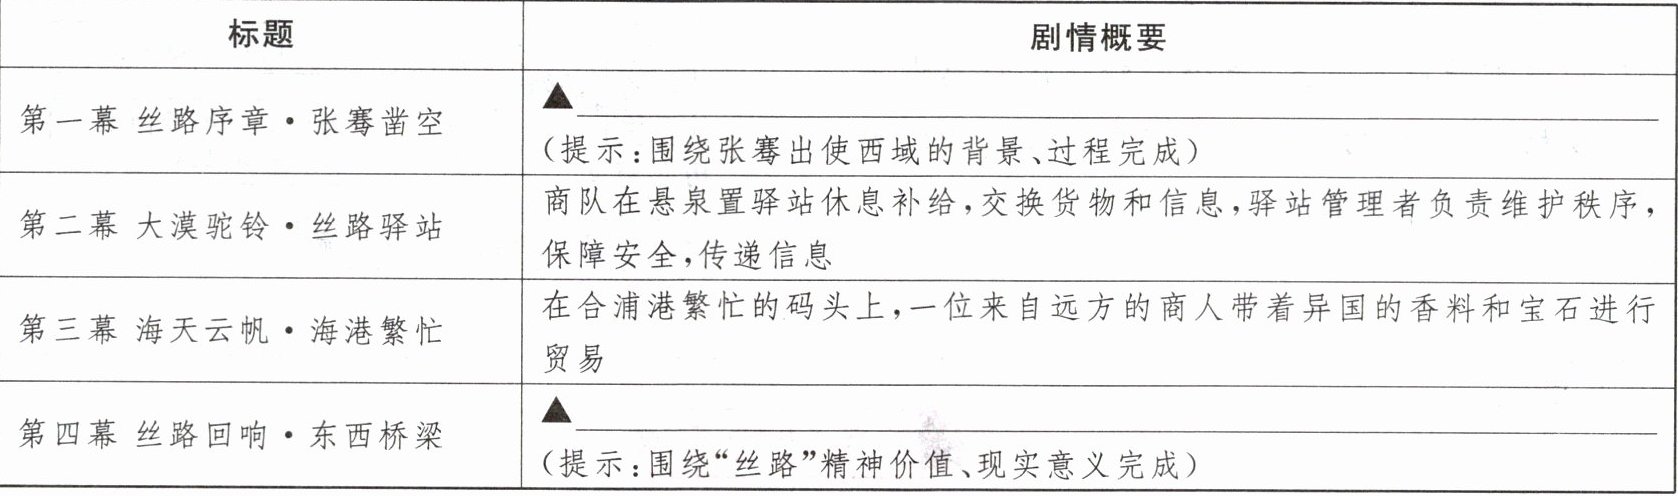 标题
剧情概要
第一幕 丝路序章·张骞凿空
▲
(提示:围绕张骞出使西域的背景、过程完成)
第二幕 大漠驼铃·丝路驿站
商队在悬泉置驿站休息补给,交换货物和信息,驿站管理者负责维护秩序,
保障安全,传递信息
第三幕 海天云帆·海港繁忙
在合浦港繁忙的码头上,一位来自远方的商人带着异国的香料和宝石进行
贸易
第四幕 丝路回响·东西桥梁
▲
(提示:围绕“丝路”精神价值、现实意义完成)